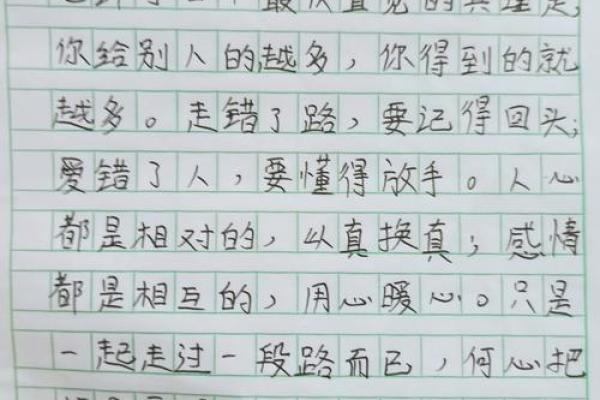 的真理是
你给别人的越多，你得到的就
越多。走错了路，要记得回头；
爱错了人，要懂得放手。人心
都是相对的，以真换真；感情
都是相互的，用心暖心。只是
一起走过一段路而已，何心把